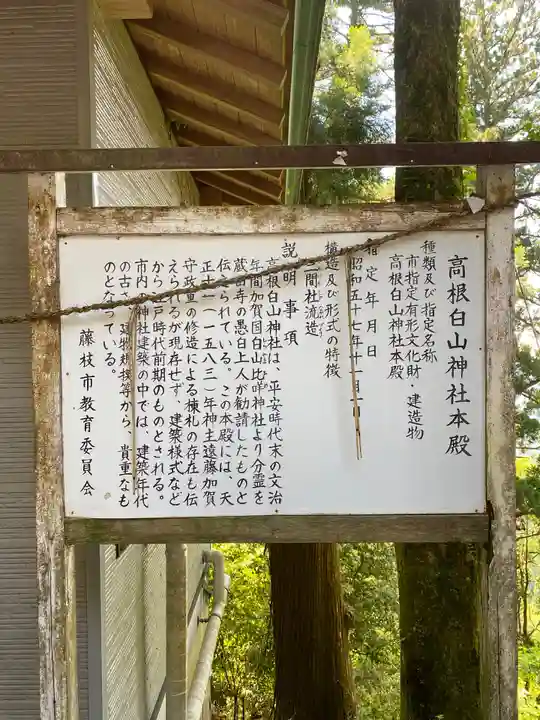 高根白山神社本殿
種類及び指定名称
市指定有形文化財・建造物
高根白山神社本殿
指定年月日
昭和五十七年十一月一日
構造及び形式の特徴
間社流造
説明事項
高根白山神社は、平安時代末の文治
年間加賀国白山比咩神社より分霊を
蔵田寺の愚白上人が勧請したものと
伝えられている。この本殿には、天
正十一(一五八三)年神主遠藤加賀
守政重の修造による棟札の存在も伝
えられるが現存せず、建築様式など
から江戸時代前期のものとされる。
市内の神社建築の中では、建築年代
の古さ、建物規模等から、貴重なも
のとなっている。
藤枝市教育委員会